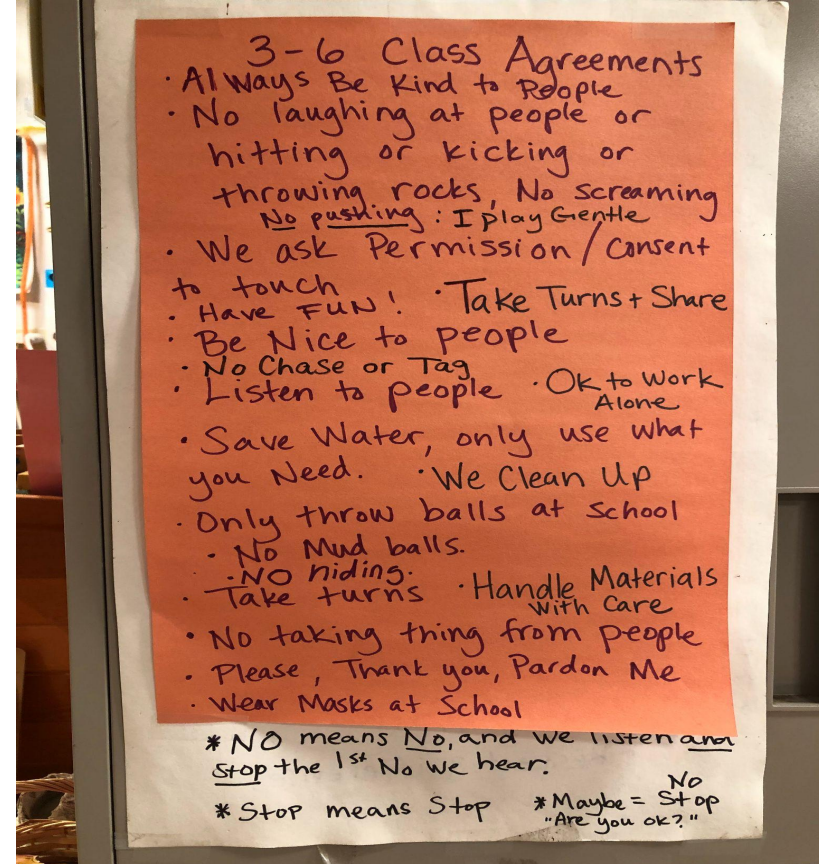 3-6 Class Agreements
· Always Be Kind to People
· No laughing at people or
hitting or kicking or
throwing rocks, No screaming
No pushing : I play Gentle
· We ask Permission / Consent
to touch
· Have FUN! · Take Turns + Share
· Be Nice to people
· No Chase or Tag
· Listen to people · Ok to Work
Alone
· Save Water, only use what
you Need. · We Clean Up
· Only throw balls at School
· No Mud balls.
· NO hiding.
· Take turns · Handle Materials
with Care
· No taking thing from people
· Please, Thank you, Pardon Me
· Wear Masks at School
* NO means No, and we listen and
stop the 1st No we hear.
* Stop means Stop * Maybe = No Stop
"Are you ok?"